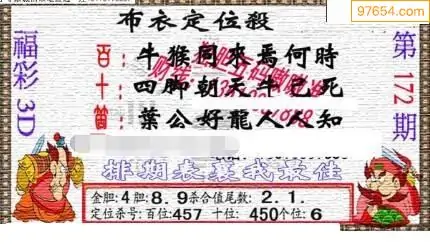 97654.com
布衣定位殺
福彩3D
第172期
百:牛猴同來焉何時
十:四脚朝天牛已死
箇:葉公好龍人人知
排期表裝我最佳
金胆:4胆:8.9杀合值尾数:2.1.
定位杀号:百位:457 十位:450个位:6